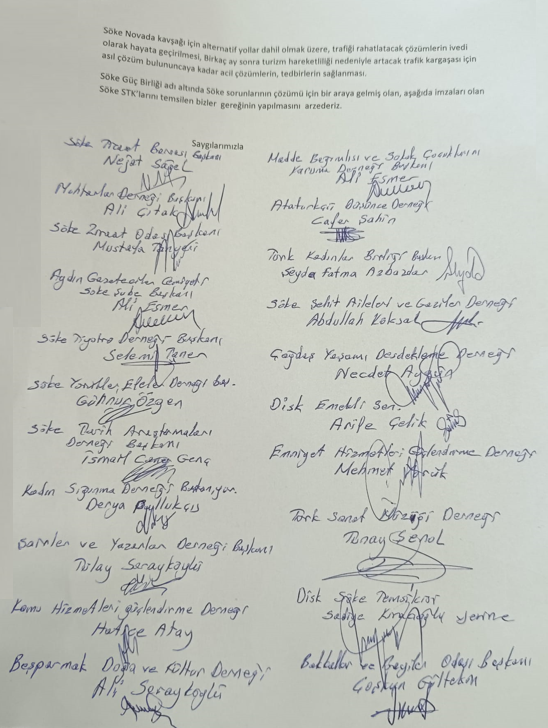 Söke Novada kavşağı için alternatif yollar dahil olmak üzere, trafiği rahatlatacak çözümlerin ivedi
olarak hayata geçirilmesi, Birkaç ay sonra turizm hareketliliği nedeniyle artacak trafik kargaşası için
asıl çözüm bulununcaya kadar acil çözümlerin, tedbirlerin sağlanması.
Söke Güç Birliği adı altında Söke sorunlarının çözümü için bir araya gelmiş olan, aşağıda imzaları olan
Söke STK'larını temsilen bizler gereğinin yapılmasını arzederiz.
Saygılarımızla
Söke Ticaret Borsası Başkanı
Nejat Sağel
Muhtarlar Derneği Başkanı
Ali Çıtak
Söke Ziraat Odası Başkanı
Mustafa
Aydın Gazeteciler Cemiyeti
Söke Şube Başkanı
Ali Esmer
Söke Tiyatro Derneği Başkanı
Selemi Taner
Söke Yörükler Efeler Derneği Baş.
Gülnur Özgen
Söke Tarih Araştırmaları
Derneği Başkanı
İsmail Caner Genç
Kadın Sığınma Derneği
Derya
Şairler ve Yazarlar Derneği Başkanı
Tülay Sarayköylü
Kamu Hizmetleri Güçlendirme Derneği
Hatice Atay
Beşparmak Doğa ve Kültür Derneği
Ali Sarayköylü
Madde Bağımlısı ve Sokak Çocuklarını
Koruma Derneği Başkanı
Ali Esmer
Atatürkçü Düşünce Derneği
Cafer Şahin
Türk Kadınlar Birliği Başkanı
Şeyda Fatma
Söke Şehit Aileleri ve Gaziler Derneği
Abdullah Köksal
Çağdaş Yaşamı Destekleme Derneği
Necdet Aygün
Disk Emekli Sen.
Arife Çelik
Emniyet Hizmetleri Güçlendirme Derneği
Mehmet
Türk Sanat Müziği Derneği
Tunay Şenol
Disk Söke Temsilcisi
Sadiye yerine
Bakkallar ve Bayiler Odası Başkanı
Coşkun Gültekin